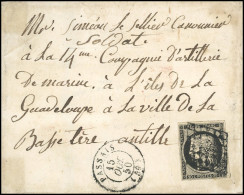 Mor. Simeon le Sellier Canounier
Soldat
à La 14me Compagnie d'artillerie
De marine, à L'iles de La
Guadeloupe à La ville de La
Basse tère. antille
PASSAIS
15